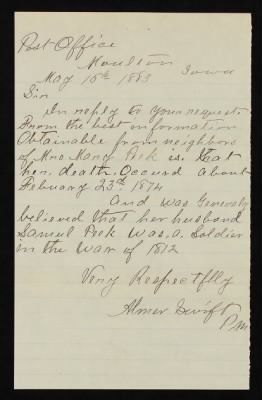 Post Office
Moulton
May 15th 1883 Iowa
Sir
In reply to your request.
From the best information
Obtainable from neighbors
of Mrs Mary Peek is. that
her. death. Occurd about
Febuary 23th. 1874
And was Generaly
belieued that her husband
Samuel Peek was. a. Soldier
in the War of 1812
Very Respectflly
Abner Swift
P.M.